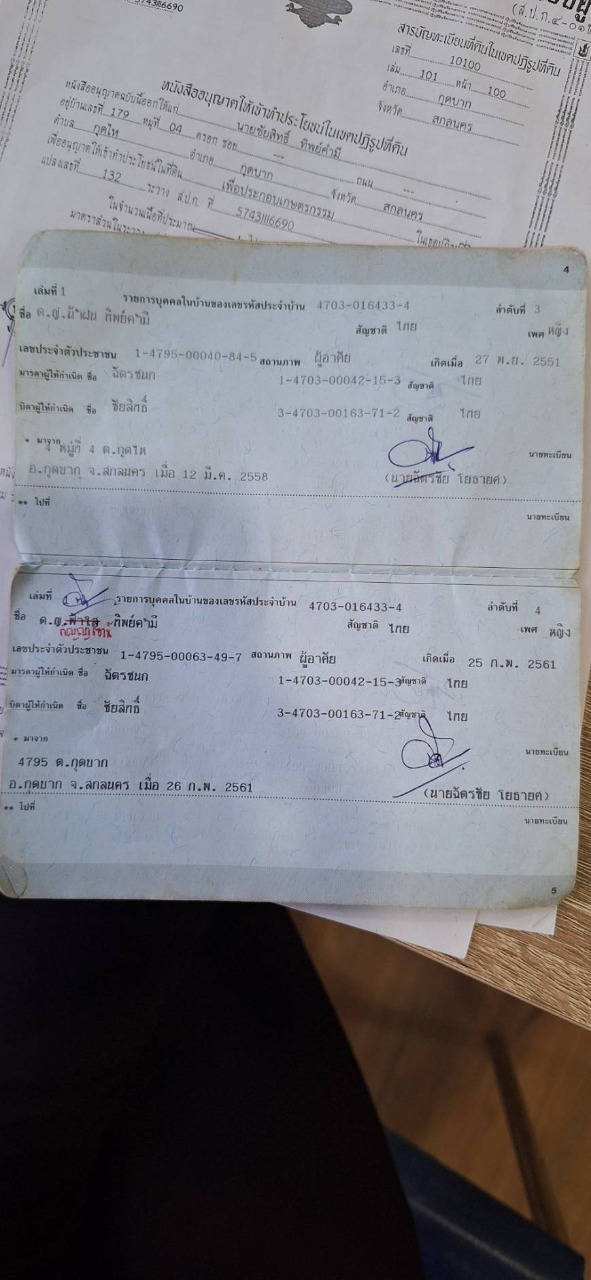 5743III6690
(ส.ป.ก.๔-๐๑
สารบัญทะเบียนที่ดินในเขตปฏิรูปที่ดิน
เลขที่ 10100
เล่ม 101 หน้า 100
อำเภอ กุดบาก
จังหวัด สกลนคร
หนังสืออนุญาตให้เข้าทำประโยชน์ในเขตปฏิรูปที่ดิน
หนังสืออนุญาตฉบับนี้ออกให้แก่ นายชัยสิทธิ์ ทิพย์คำมี
อยู่บ้านเลขที่ 179 หมู่ที่ 04 ตรอก ซอย --- ถนน ---
ตำบล กุดไห อำเภอ กุดบาก จังหวัด สกลนคร
เพื่ออนุญาตให้เข้าทำประโยชน์ในที่ดิน เพื่อประกอบเกษตรกรรม
แปลงเลขที่ 132 ระวาง ส.ป.ก. ที่ 5743III6690
ในจำนวนเนื้อที่ประมาณ
มาตราส่วนในระวาง
4
เล่มที่ 1 รายการบุคคลในบ้านของเลขรหัสประจำบ้าน 4703-016433-4 ลำดับที่ 3
ชื่อ ด.ญ.น้ำฝน ทิพย์คำมี สัญชาติ ไทย เพศ หญิง
เลขประจำตัวประชาชน 1-4795-00040-84-5 สถานภาพ ผู้อาศัย เกิดเมื่อ 27 พ.ย. 2551
มารดาผู้ให้กำเนิด ชื่อ ฉัตรชนก 1-4703-00042-15-3 สัญชาติ ไทย
บิดาผู้ให้กำเนิด ชื่อ ชัยสิทธิ์ 3-4703-00163-71-2 สัญชาติ ไทย
* มาจาก
4 หมู่ที่ 4 ต.กุดไห นายทะเบียน
อ.กุดบาก จ.สกลนคร เมื่อ 12 มี.ค. 2558 (นายฉัตรชัย โยธายศ)
** ไปที่
นายทะเบียน
เล่มที่ รายการบุคคลในบ้านของเลขรหัสประจำบ้าน 4703-016433-4 ลำดับที่ 4
ชื่อ ด.ญ.ฟ้าใส ทิพย์คำมี สัญชาติ ไทย เพศ หญิง
เลขประจำตัวประชาชน 1-4795-00063-49-7 สถานภาพ ผู้อาศัย เกิดเมื่อ 25 ก.พ. 2561
มารดาผู้ให้กำเนิด ชื่อ ฉัตรชนก 1-4703-00042-15-3 สัญชาติ ไทย
บิดาผู้ให้กำเนิด ชื่อ ชัยสิทธิ์ 3-4703-00163-71-2 สัญชาติ ไทย
* มาจาก
4795 ต.กุดบาก นายทะเบียน
อ.กุดบาก จ.สกลนคร เมื่อ 26 ก.พ. 2561 (นายฉัตรชัย โยธายศ)
** ไปที่
นายทะเบียน
5